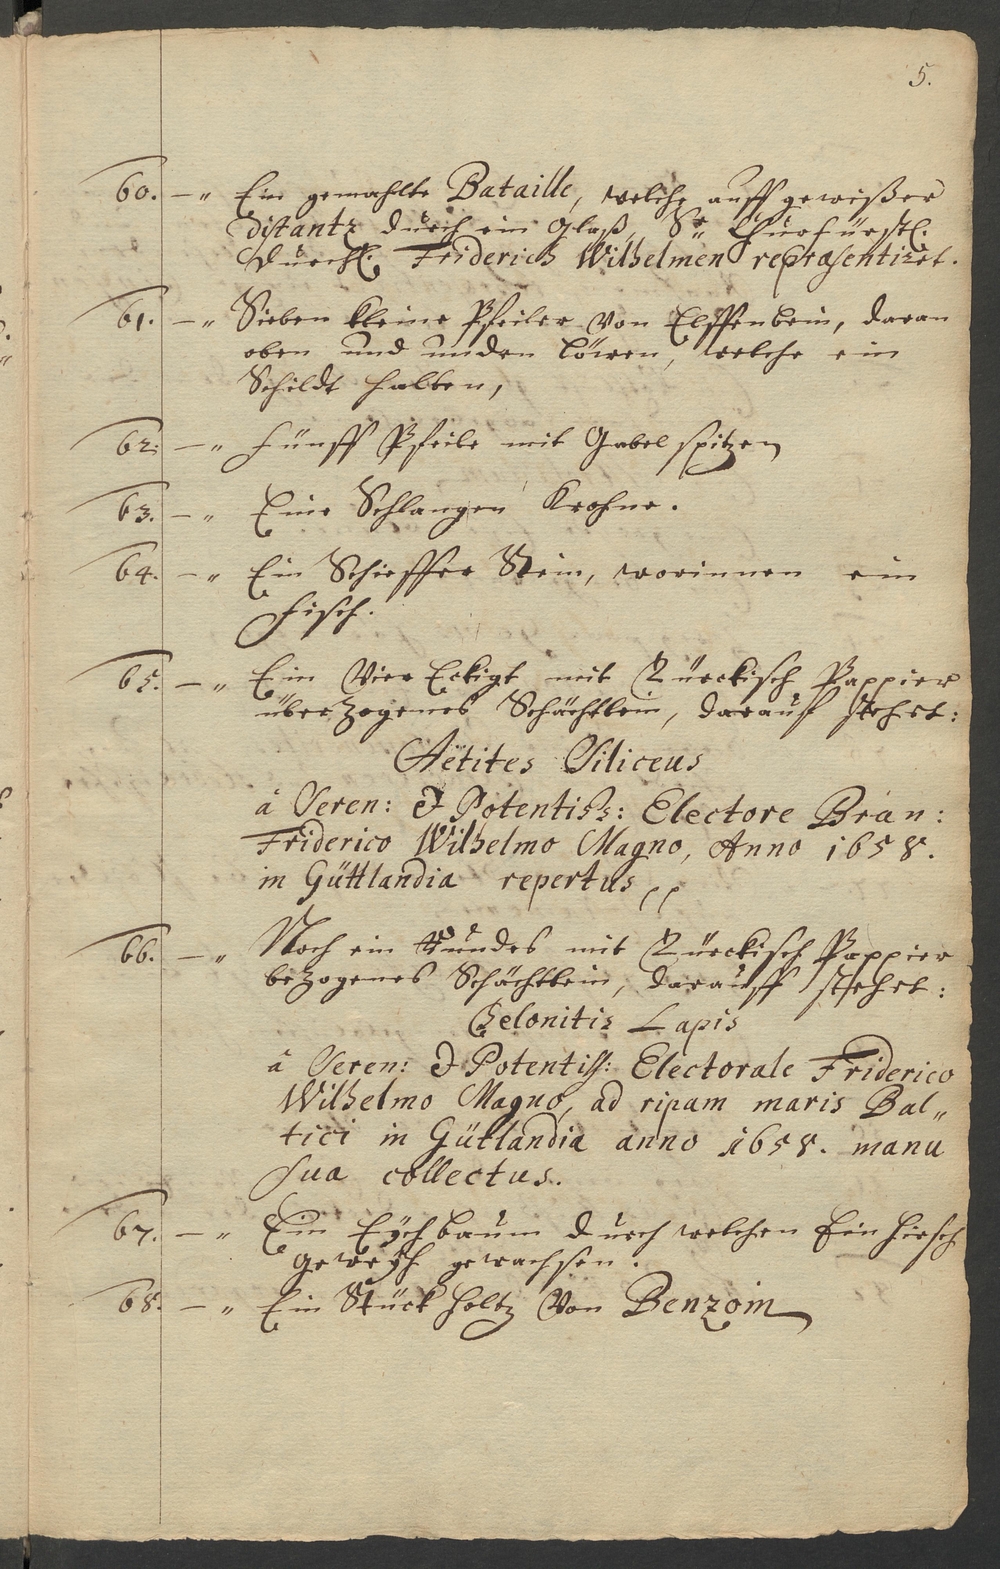 5.
60. — „ Ein gemahlte Bataille, welche auff gewißer
distantz durch ein Glaß, Sr. Churfürstl.
Durchl. Friderich Wilhelmen repræsentiret.
61. — „ Sieben kleine Pfeiler von Elffenbein, daran
oben und unden Löwen, welche ein
Schildt halten,
62. — „ Fünff Pfeile mit Gabel spitzen
63. — „ Eine Schlangen Krohne.
64. — „ Ein Schieffer Stein, worinnen ein
Fisch.
65. — „ Ein Vier Eckigt mit Türckisch Pappier
überzogenes Schächtlein, darauff stehet:
Aëtites Siliceus
â Seren: & Potentiss: Electore Bran:
Friderico Wilhelmo Magno, Anno 1658.
in Güttlandia repertus,,
66. — „ Noch ein Rundes mit Türckisch Pappier
bezogenes Schächtlein, darauff stehet:
Gelonitis Lapis
â Seren: & Potentiss: Electorale Friderico
Wilhelmo Magno, ad ripam maris Bal„
tici in Gütlandia anno 1658. manu
sua collectus.
67. — „ Ein Eychbaum durch welchen Ein Hirsch
geweyh gewachsen.
68. — „ Ein Stück Holtz von Benzoin